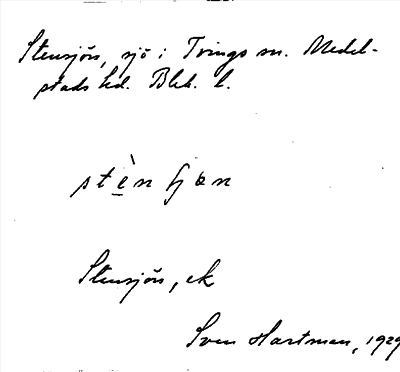 Stensjön, sjö i Tvings sn. Medel-
stads hd. Blek. l.
stè̱n ʃjøn
Stensjön, ek
Sven Hartman, 1929